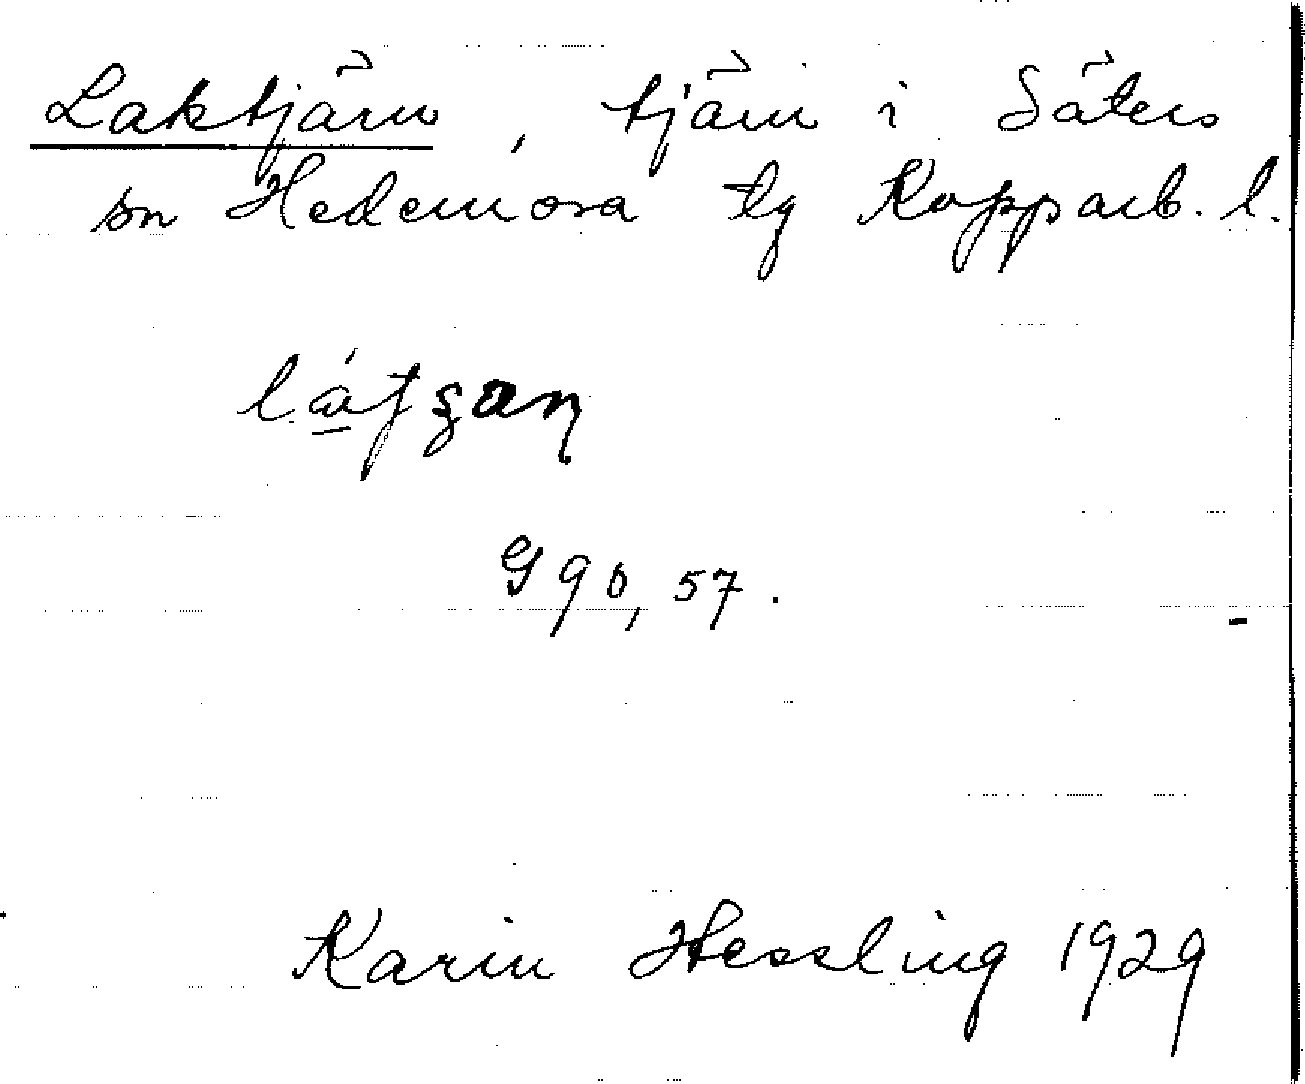 Laktjärn, tjärn i Säters
sn Hedemora tg Kopparb. l.
G 90, 57.
Karin Hessling 1929